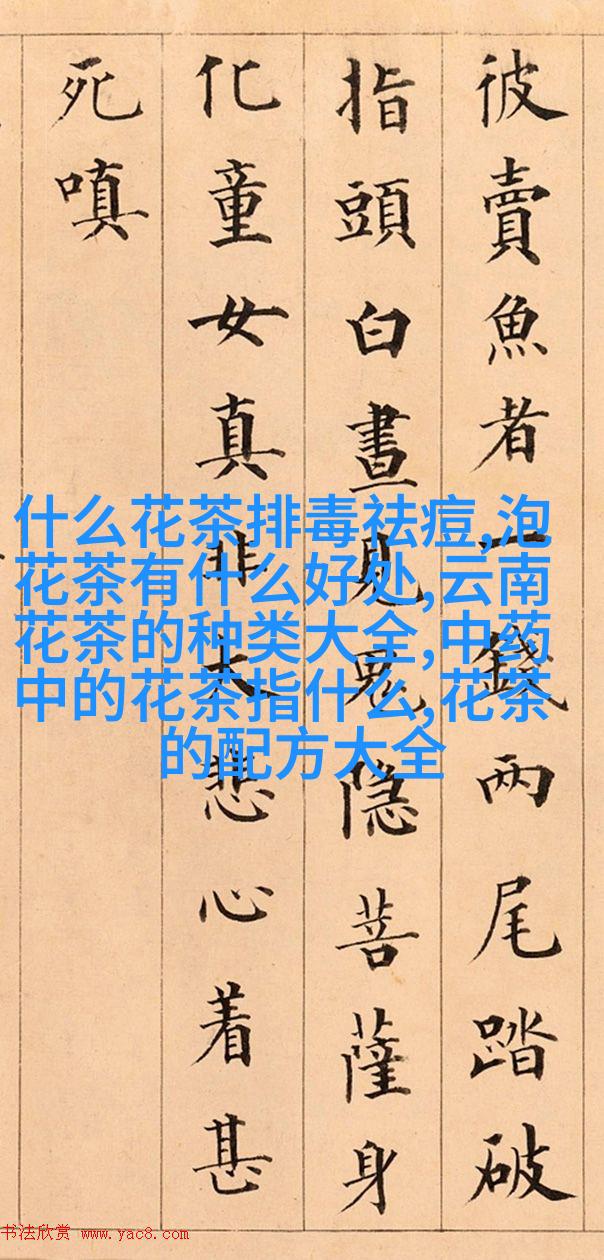 彼賣魚者一錢兩尾踏破
指頭白晝見鬼隐菩薩身
化童女真非大悲心着甚
死嗔
什么花茶排毒祛痘,泡
花茶有什么好处,云南
花茶的种类大全,中药
中的花茶指什么,花茶
的配方大全
书法欣赏 www.yac8.com